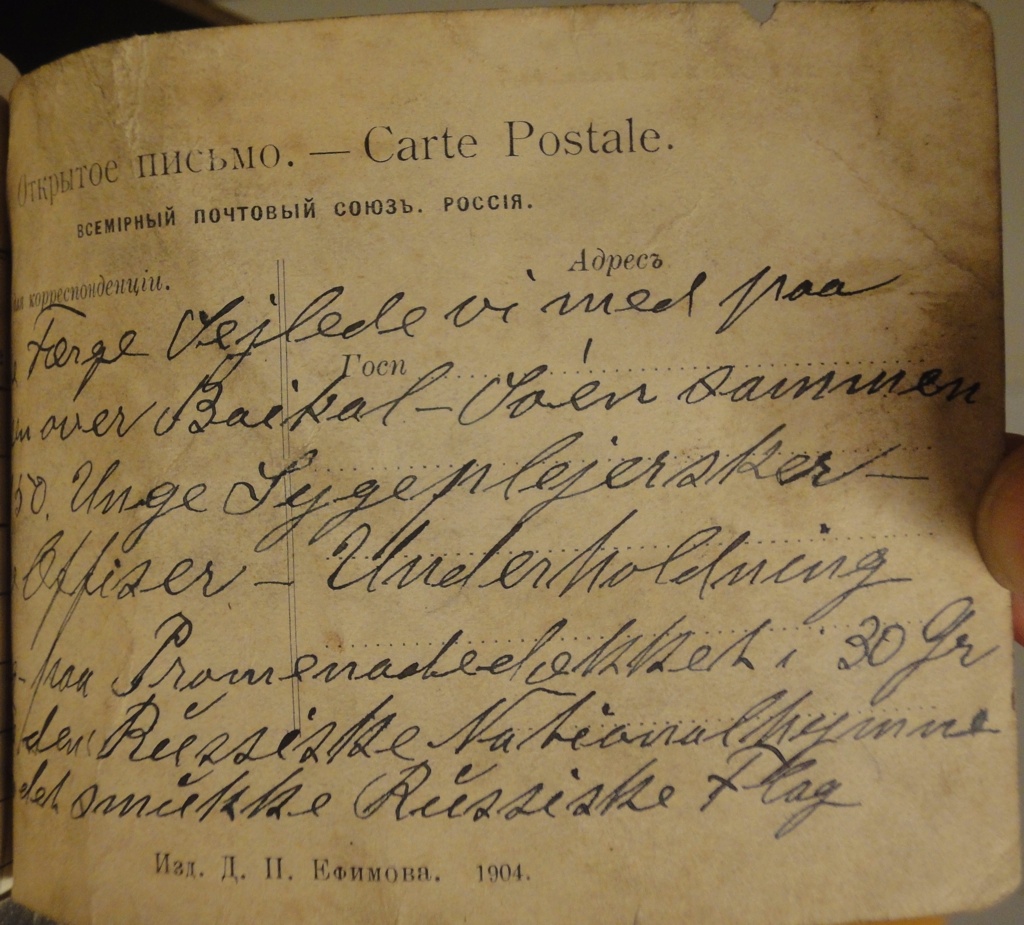 Открытое письмо. — Carte Postale.
ВСЕМІРНЫЙ ПОЧТОВЫЙ СОЮЗЪ. РОССІЯ.
корреспонденціи.
Адресъ
Færge Sejlede vi med paa
Госп
over Baikal - Søén sammen
50. Unge Sygeplejersker -
Offiser - Underholdning
paa Promenadedekket i 30 Gr
den Rŭssiske Nationalhymne
det smŭkke Rŭssiske Flag
Изд. Д. П. Ефимова. 1904.